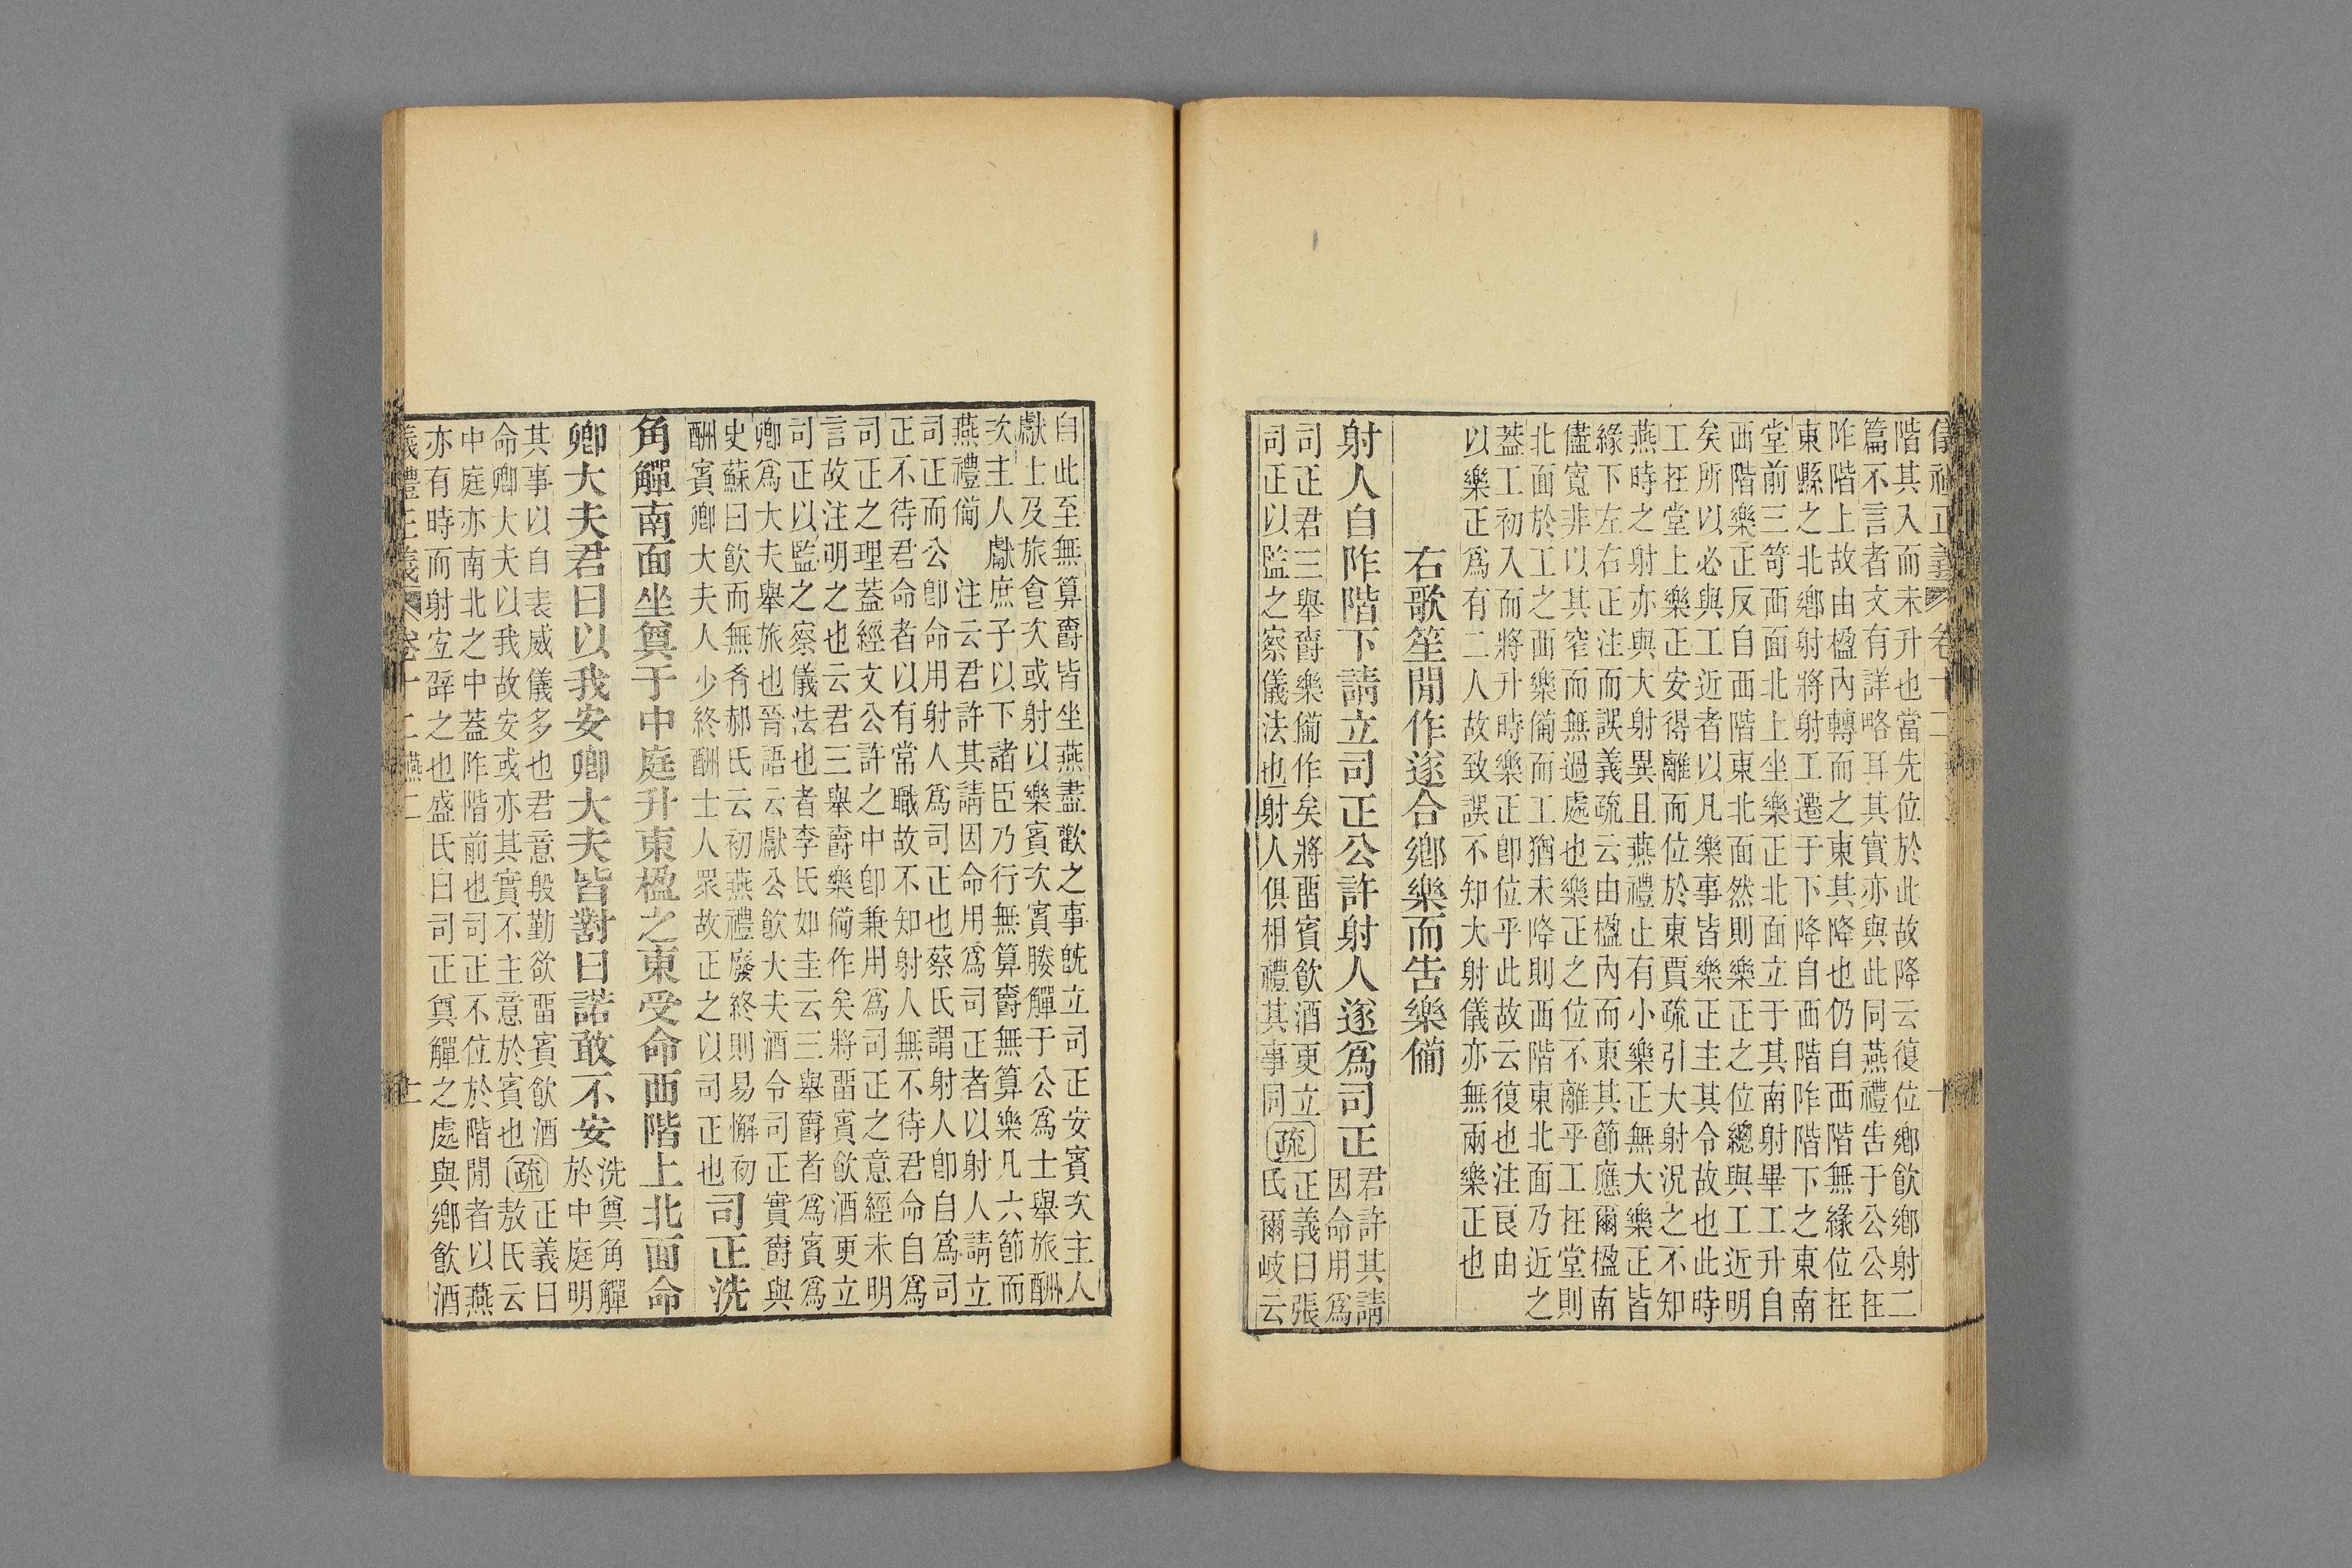 儀禮正義 卷十二 十
階其入而未升也當先位於此故降云復位鄉飲鄉射二
篇不言者文有詳略耳其實亦與此同燕禮告于公公在
阼階上故由楹內轉而之東其降也仍自西階無緣位在
東縣之北鄉射將射工遷于下降自西階阼階下之東南
堂前三笴西面北上坐樂正北面立于其南射畢工升自
西階樂正反自西階東北面然則樂正之位總與工近明
矣所以必與工近者以凡樂事皆樂正主其令故也此時
工在堂上樂正安得離而位於東賈疏引大射況之不知
燕時之射亦與大射異且燕禮止有小樂正無大樂正皆
緣下左右正注而誤義疏云由楹內而東其節應爾楹南
儘寬非以其窄而無過處也樂正之位不離乎工在堂則
北面於工之西樂備而工猶未降則西階東北面乃近之
蓋工初入而將升時樂正卽位乎此故云復也注良由
以樂正爲有二人故致誤不知大射儀亦無兩樂正也
右歌笙閒作遂合鄉樂而告樂備
射人自阼階下請立司正公許射人遂爲司正
君許其請
因命用爲
司正君三舉爵樂備作矣將畱賓飲酒更立
司正以監之察儀法也射人俱相禮其事同
疏
正義曰張
氏爾岐云
自此至無算爵皆坐燕盡歡之事旣立司正安賓次主人
獻士及旅食次或射以樂賓次賓媵觶于公爲士舉旅酬
次主人獻庶子以下諸臣乃行無算爵無算樂凡六節而
燕禮備 注云君許其請因命用爲司正者以射人請立
司正而公卽命用射人爲司正也蔡氏謂射人卽自爲司
正不待君命者以有常職故不知射人無不待君命自爲
司正之理蓋經文公許之中卽兼用爲司正之意經未明
言故注明之也云君三舉爵樂備作矣將畱賓飲酒更立
司正以監之察儀法也者李氏如圭云三舉爵者爲賓爲
卿爲大夫舉旅也晉語云獻公飲大夫酒令司正實爵與
史蘇曰飲而無肴郝氏云初燕禮廢終則易懈初
酬賓卿大夫人少終酬士人眾故正之以司正也
司正洗
角觶南面坐奠于中庭升東楹之東受命西階上北面命
卿大夫君曰以我安卿大夫皆對曰諾敢不安
洗奠角觶
於中庭明
其事以自表威儀多也君意殷勤欲畱賓飲酒
命卿大夫以我故安或亦其實不主意於賓也
疏
正義曰
敖氏云
中庭亦南北之中蓋阼階前也司正不位於階閒者以燕
亦有時而射宐辟之也盛氏曰司正奠觶之處與鄉飲酒
義禮正義 卷十二 燕二